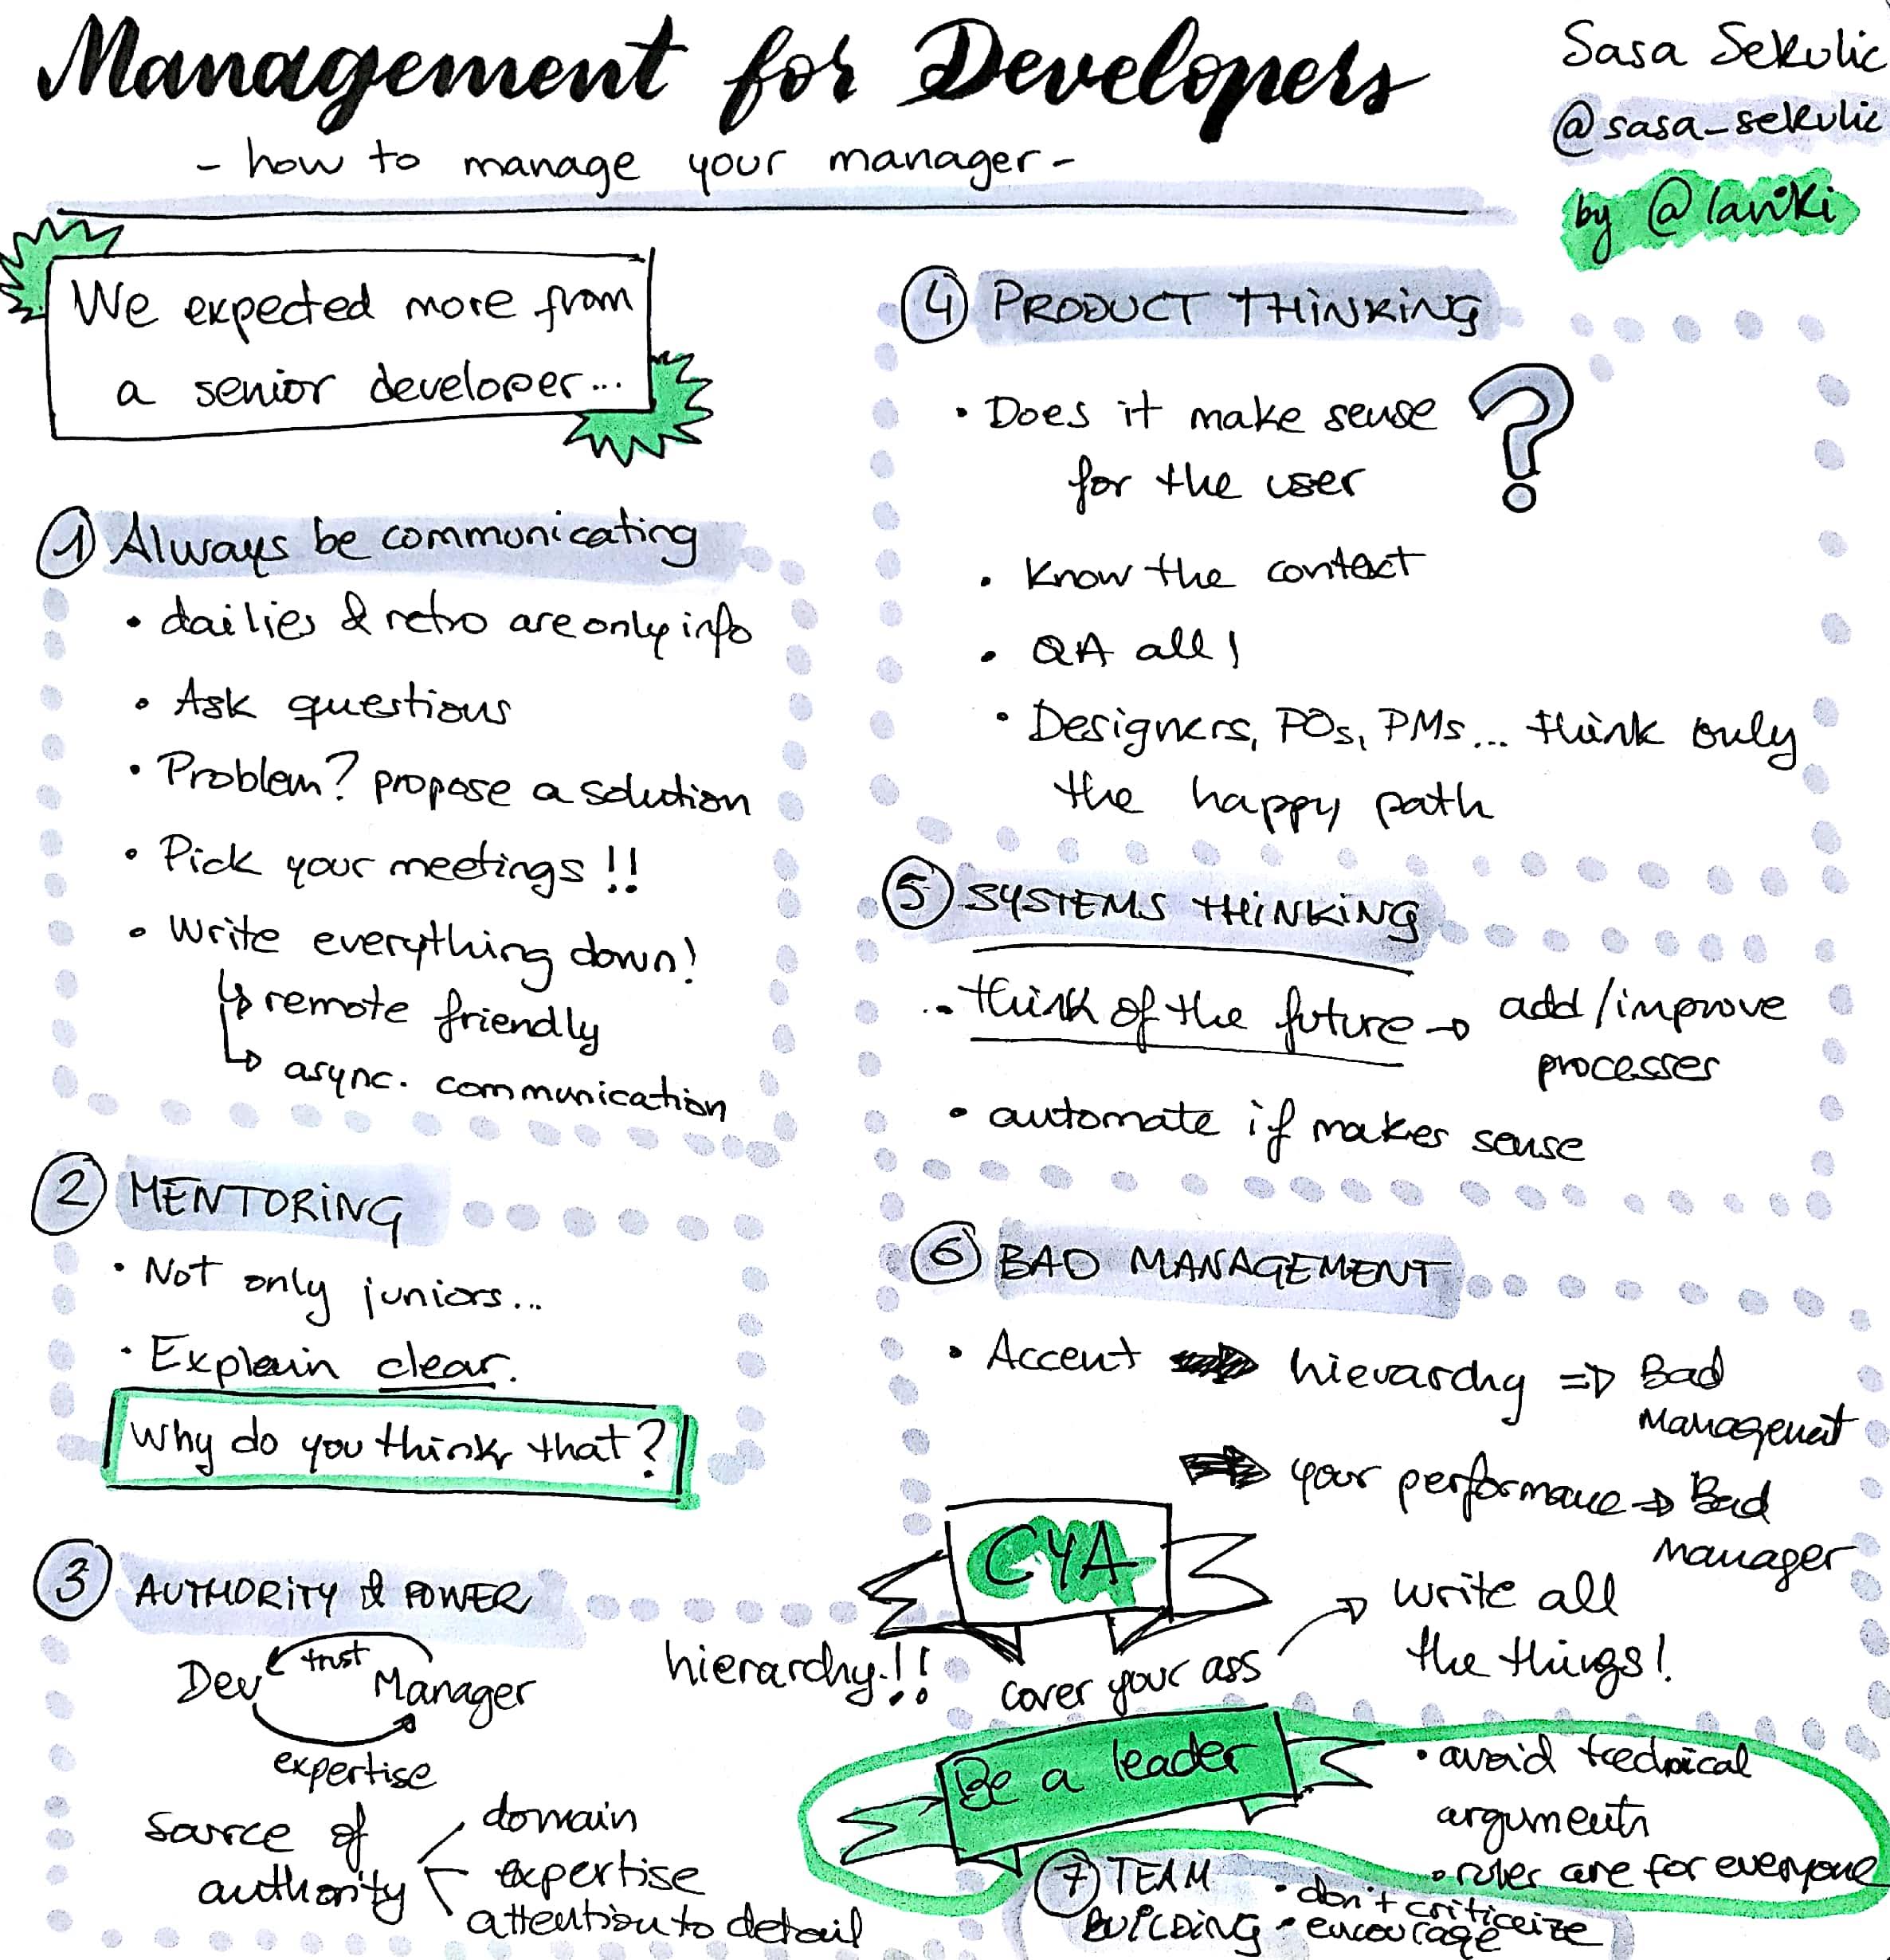 Management for Developers
- how to manage your manager -
Sasa Sekulic
@sasa_sekulic
by @lariki
We expected more from
a senior developer...
1 Always be communicating
• dailies & retro are only info
• Ask questions
• Problem? propose a solution
• Pick your meetings!!
• Write everything down!
↳ remote friendly
↳ async. communication
2 MENTORING
• Not only juniors...
• Explain clear.
Why do you think that?
3 AUTHORITY & POWER
trust
Dev Manager
expertise
hierarchy!!
source of
authority
domain
expertise
attention to detail
4 PRODUCT THINKING
• Does it make sense
for the user
?
• Know the context
• QA all!
• Designers, POs, PMs... think only
the happy path
5 SYSTEMS THINKING
• think of the future → add/improve
processes
• automate if makes sense
6 BAD MANAGEMENT
• Accent → hierarchy ⇒ Bad
Management
→ your performance → Bad
Manager
CYA
cover your ass
→ write all
the things!
Be a leader
• avoid technical
arguments
• rules are for everyone
7 TEAM
BUILDING
• don't criticize
• encourage